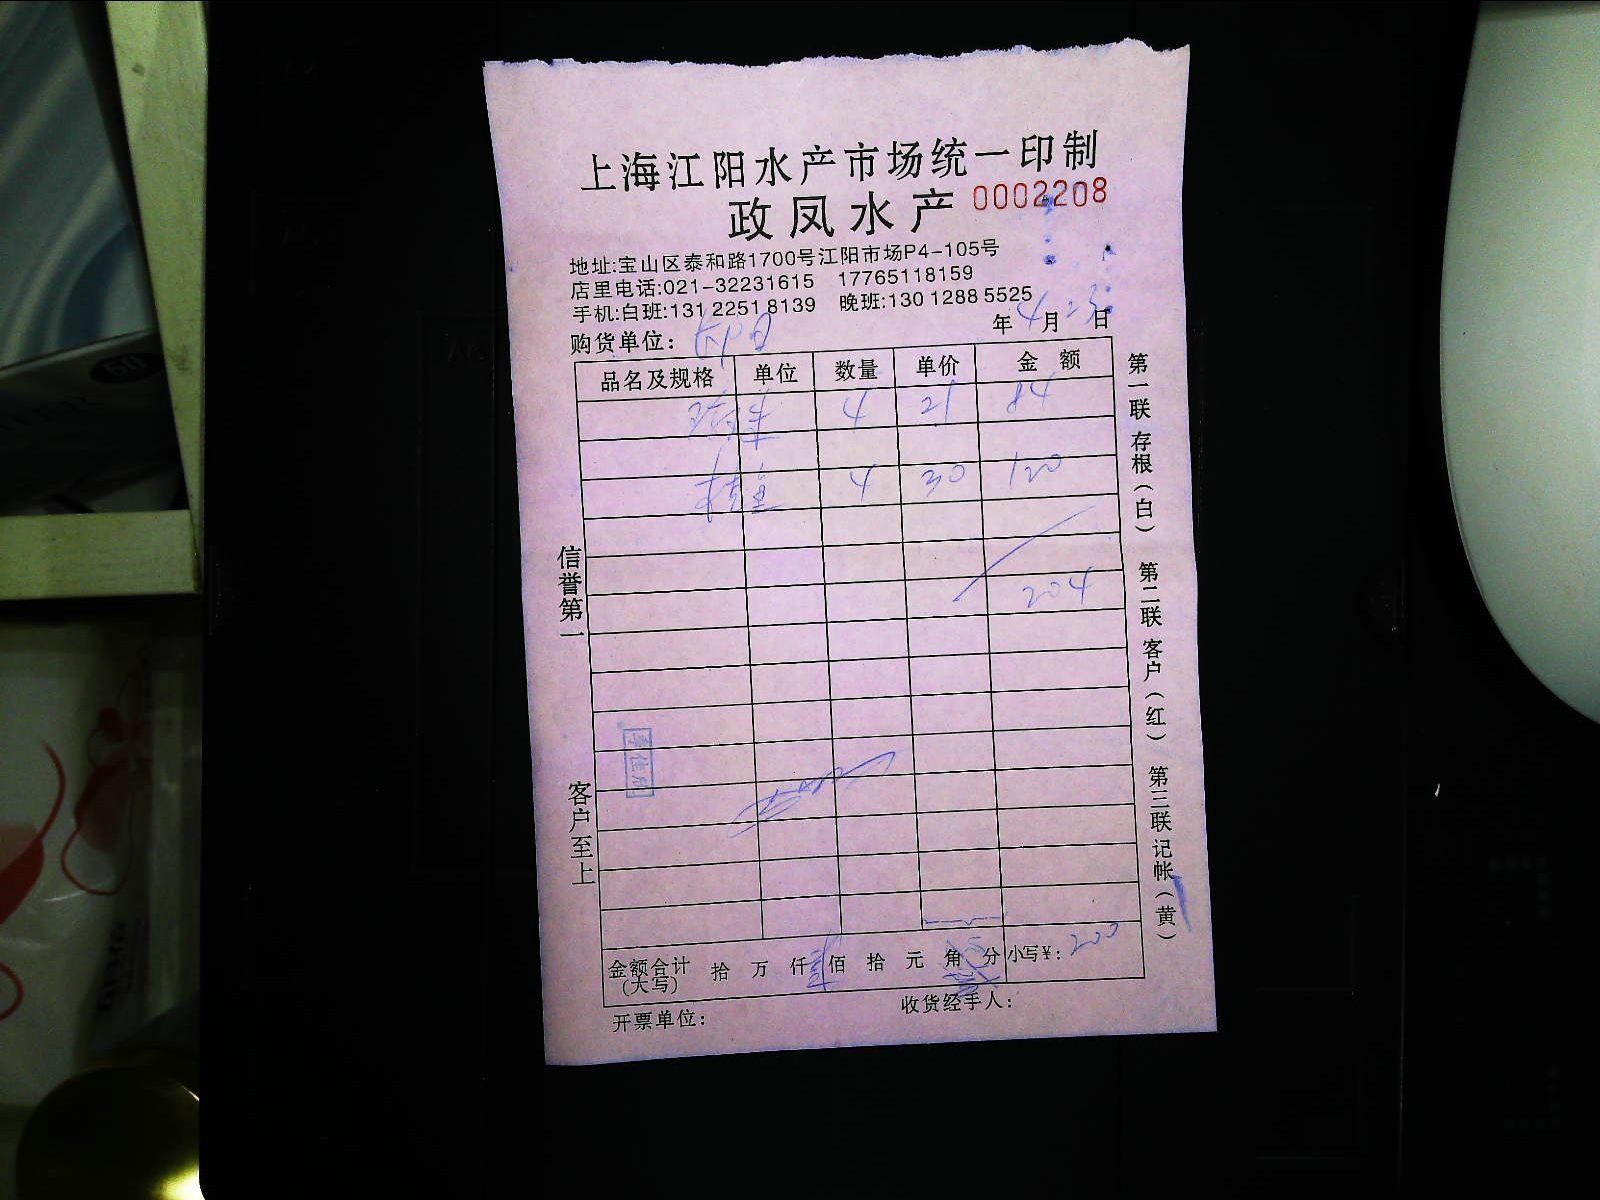 上海江阳水产市场统一印制
政凤水产 0002208
地址:宝山区泰和路1700号江阳市场P4-105号
店里电话:021-32231615 17765118159
手机:白班:131 2251 8139 晚班:130 1288 5525
购货单位: 年 4 月 日
品名及规格 单位 数量 单价 金额
4 21 84
4 30 120
204
信誉第一
客户至上
第一联 存根(白) 第二联 客户(红) 第三联 记帐(黄)
金额合计(大写) 拾 万 仟 佰 拾 元 角 分 小写¥: 200
开票单位: 收货经手人: